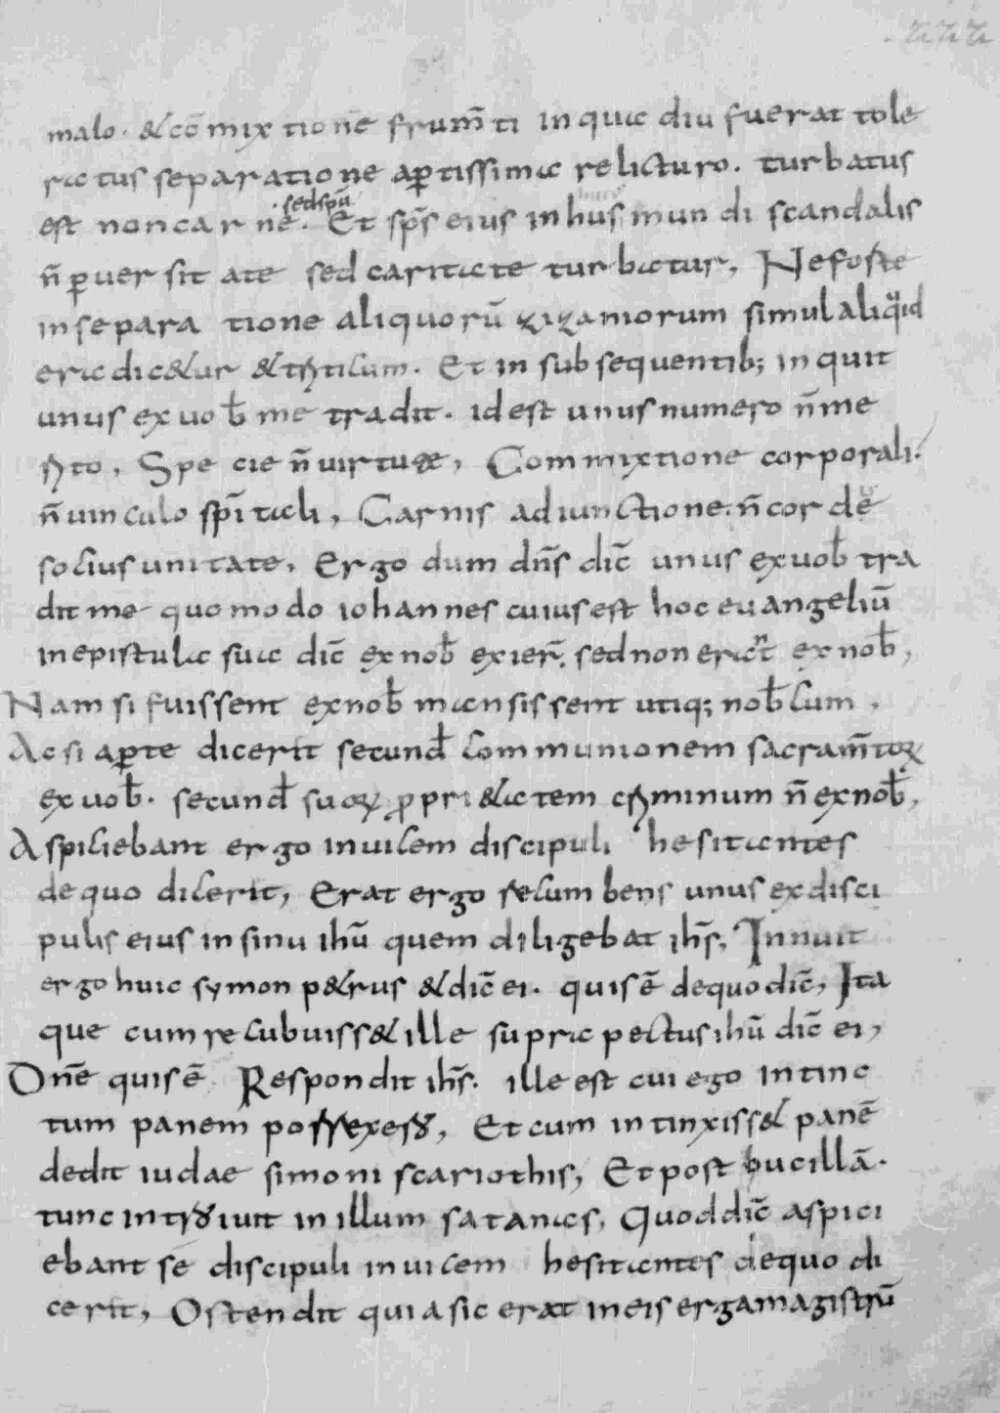 malo. &cō mixtione frum̄ti inqua diu fuerat tole
ratus separatione ap̄tissima relicturo. turbatus
est non carne. sed sp̄u Et sp̄s eius in hus mundi scandalis
n̄ p̱uersitate sed caritate turbatur, Ne foste
inseparatione aliquorū zizaniorum simul aliquid
eradic&ur &triticum. Et in subsequentib; inquit
unus ex uob̄ me tradit. id est unus numero n̄ me
rito, Specie n̄ uirtute, Commixtione corporali.
n̄ uinculo sp̄itali, Carnis adiunctione. n̄ cordẹ
socius unitate, Ergo dum dn̄s dic̄ unus ex uob̄ tra
dit me quomodo iohannes cuius est hoc euangeliū
in epistula sua dic̄ ex nob̄ exier̄. sed non erant ex nob̄,
Nam si fuissent ex nob̄ mansissent utiq; nob̄cum,
Ac si ap̱te dicerit secund̄ communionem sacram̄toꝝ
ex uob̄. secund̄ suoꝝ ꝓpri&atem criminum n̄ ex nob̄,
Aspiciebant ergo inuicem discipuli hesitantes
de quo dicerit, Erat ergo recumbens unus ex disci
pulis eius in sinu ihū quem diligebat ihs̄, Innuit
ergo huic symon p&rus &dic̄ ei. quis ē de quo dic̄, Ita
que cum recubuiss& ille supra pectus ihū dic̄ ei,
Dn̄e quis ē Respondit ihs̄. ille est cui ego intinc
tum panem Et cum intinxiss& panē
dedit iudae simoni scariothis, Et post bucillā.
tunc introiuit in illum satanas, Quod dic̄ aspici
ebant se discipuli inuicem hesitantes de quo di
cerit, Ostendit quia sic erat in eis erga magistrū